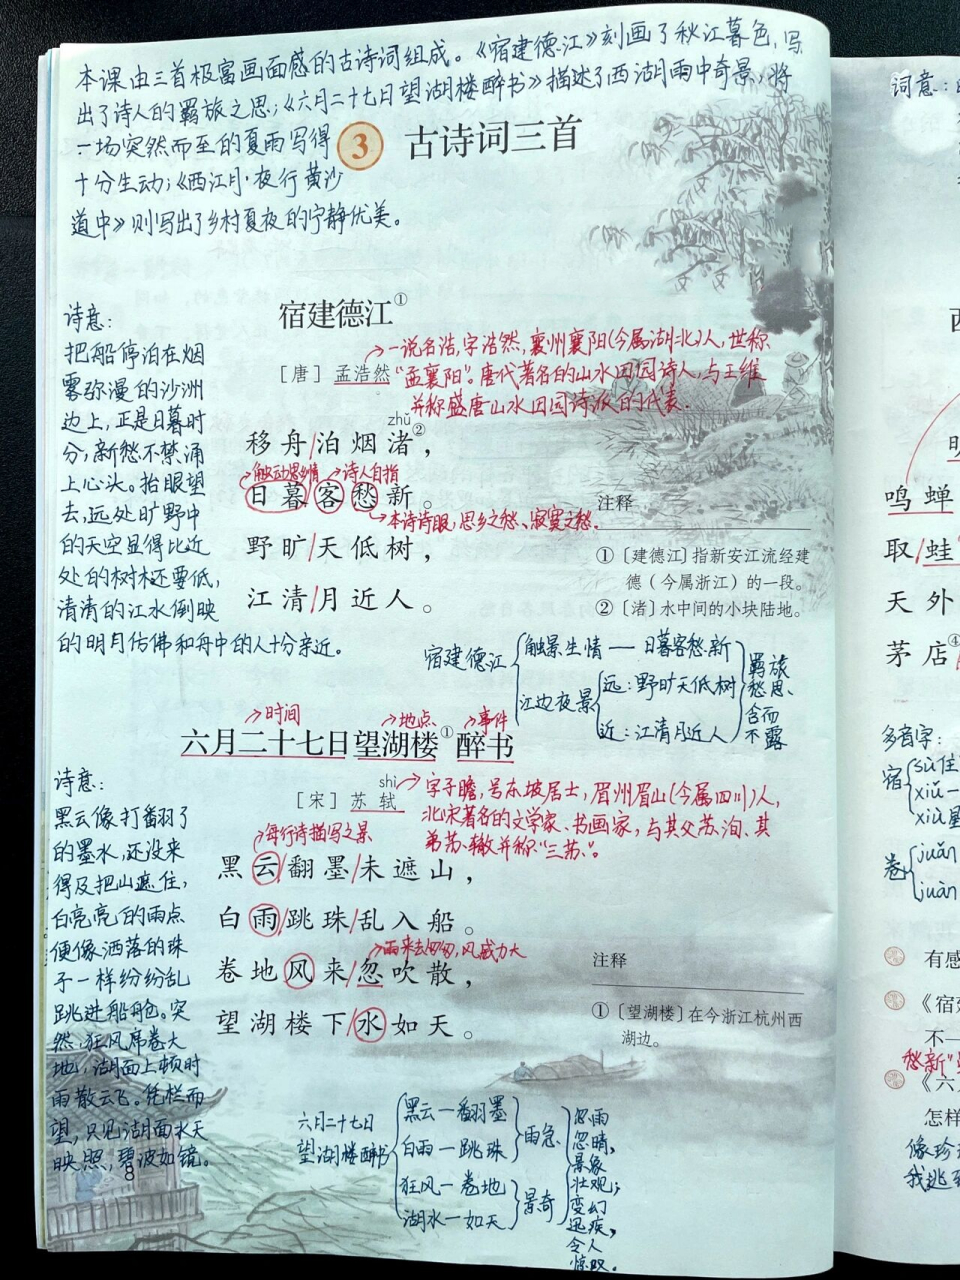 本课由三首极富画面感的古诗词组成。《宿建德江》刻画了秋江暮色,写
出了诗人的羁旅之思;《六月二十七日望湖楼醉书》描述了西湖雨中奇景,将
一场突然而至的夏雨写得
十分生动;《西江月·夜行黄沙
道中》则写出了乡村夏夜的宁静优美。
3 古诗词三首
宿建德江①
[唐] 孟浩然
一说名浩,字浩然,襄州襄阳(今属湖北)人,世称
“孟襄阳”。唐代著名的山水田园诗人,与王维
并称盛唐山水田园诗派的代表.
诗意:
把船停泊在烟
雾弥漫的沙洲
边上,正是日暮时
分,新愁不禁涌
上心头。抬眼望
去,远处旷野中
的天空显得比近
处的树木还要低,
清清的江水倒映
的明月仿佛和舟中的人十分亲近。
zhǔ
移舟/泊烟渚②,
触动思乡情 诗人自指
日暮/客愁新。
本诗诗眼,思乡之愁、寂寞之愁.
野旷/天低树,
江清/月近人。
注释
①〔建德江〕指新安江流经建
德(今属浙江)的一段。
②〔渚〕水中间的小块陆地。
宿建德江
触景生情——日暮客愁新
江边夜景
远:野旷天低树
近:江清月近人
羁旅
愁思、
含而
不露
时间 地点 事件
六月二十七日望湖楼①醉书
shì
[宋] 苏轼
字子瞻,号东坡居士,眉州眉山(今属四川)人,
北宋著名的文学家、书画家,与其父苏洵、其
弟苏辙并称“三苏”。
诗意:
黑云像打翻了
的墨水,还没来
得及把山遮住,
白亮亮的雨点
便像洒落的珠
子一样纷纷乱
跳进船舱。突
然,狂风席卷大
地,湖面上顿时
雨散云飞。凭栏而
望,只见湖面水天
映照,碧波如镜。
每行诗描写之景
黑云/翻墨/未遮山,
白雨/跳珠/乱入船。
雨来去匆匆,风威力大
卷地风来/忽吹散,
望湖楼下/水如天。
注释
①〔望湖楼〕在今浙江杭州西
湖边。
六月二十七日
望湖楼醉书
黑云—翻墨
白雨—跳珠
雨急
狂风—卷地
湖水—如天
景奇
忽雨
忽晴,
景象
壮观;
变幻
迅疾,
令人
惊叹。
8
词意:
鸣蝉
取/蛙
天外
茅店④
多音字:
宿
sù住
xiǔ一
xiù星
卷
juǎn
juàn
有感
《宿
不一
愁新”
《六
怎样
像珍
我逃